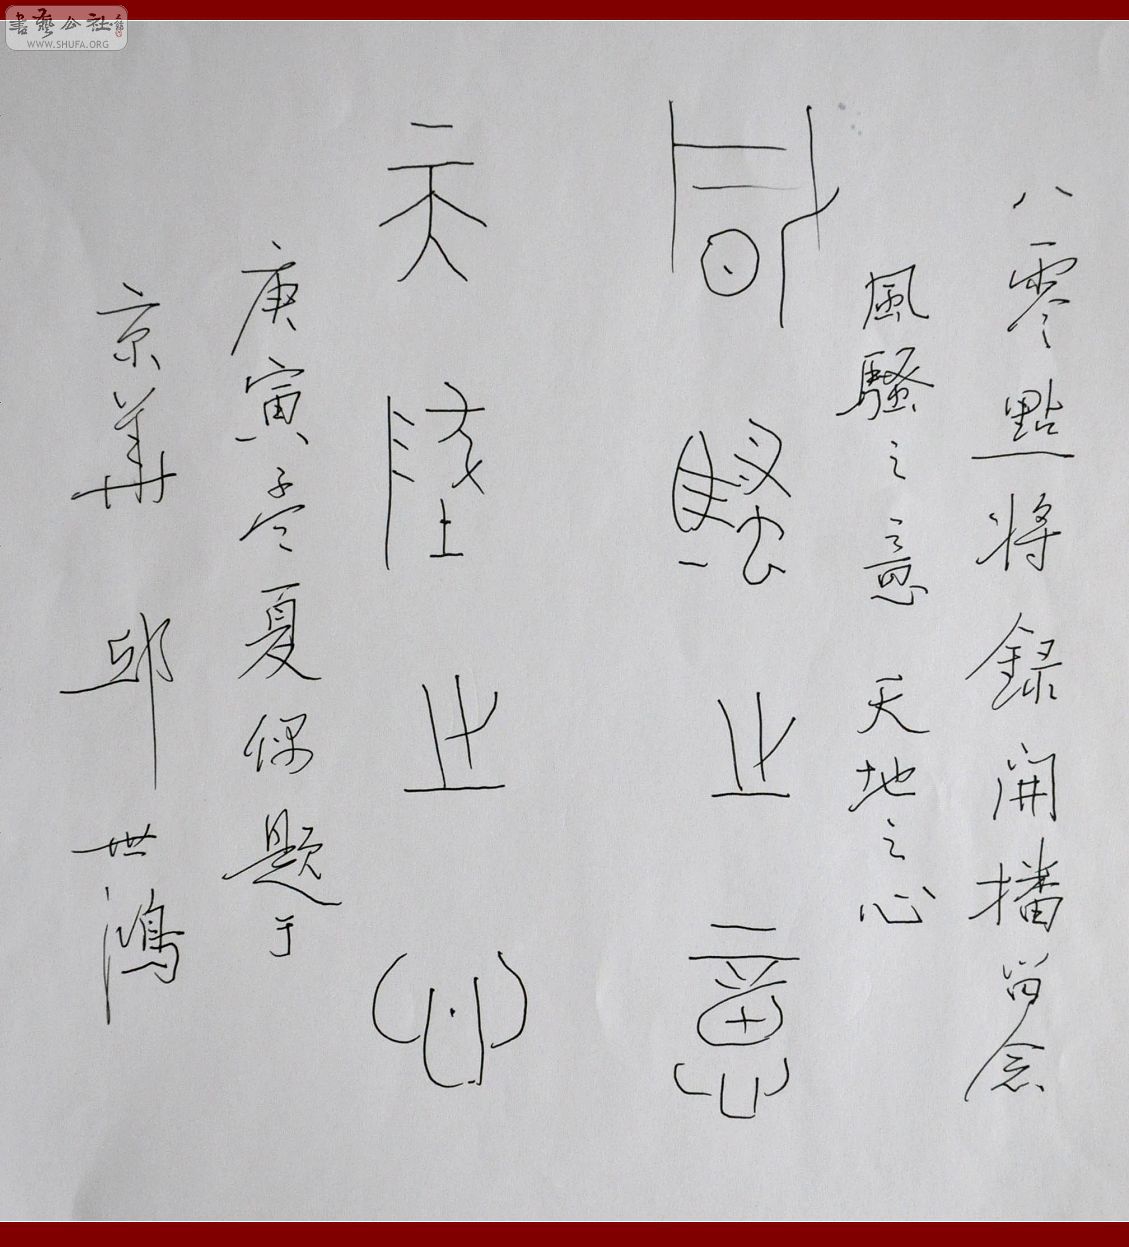 八零點將錄開播留念
風騷之意 天地之心
風騷之意
天地之心
庚寅孟夏偶題于
京華 邱世鴻
書藝公社
WWW.SHUFA.ORG